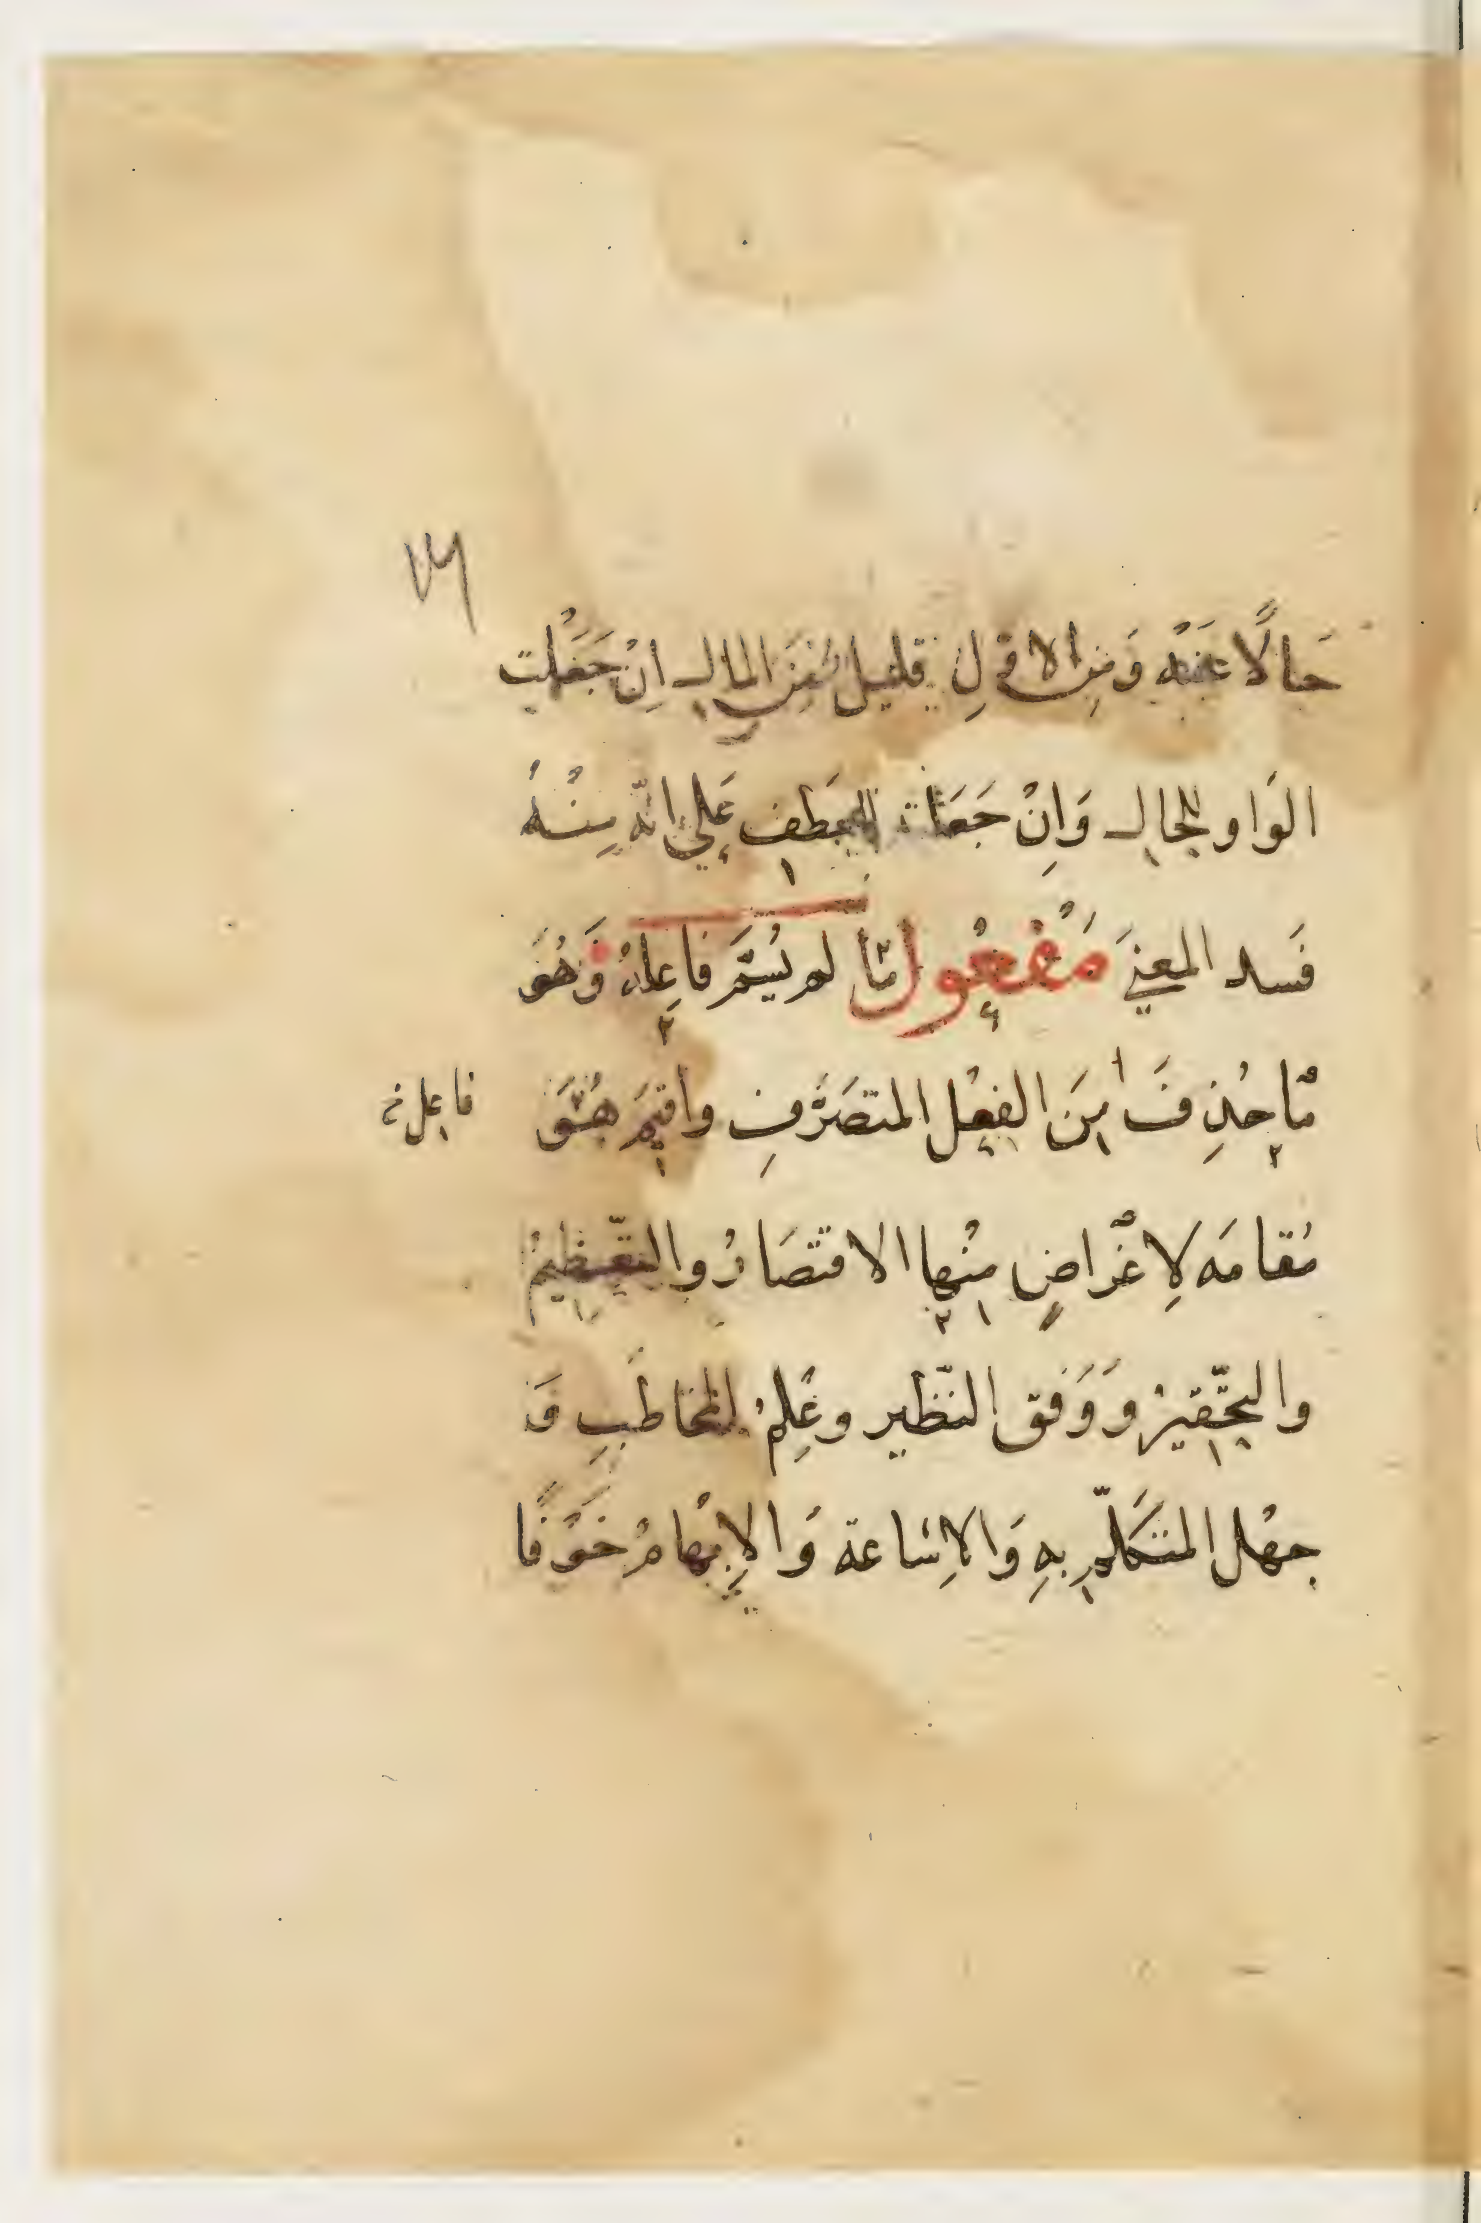 ١٣
حَالًا عَنْهُ وَمِن الاوّلِ قليل مِن المال اِنْ جَعَلْت
الوَاو للحال وَاِنْ جَعَلت للعَطف عَلي انّه مِنْهُ
فَسد المعنيَ مَفْعُول مٰا لم يُسَمَّ فاعِلهُ وَهُوَ
مٰا حُذِفَ مِنَ الفِعْل المتصَرِّفِ واقيمَ هُوَ
فاعله
مُقامَه لِاغْراضٍ مِنْها الاقتصَارُ والتعّظِيمُ
والتحّقيرُ وَوَفق النّظير وعِلمُ المخاطَبِ وَ
جهْل المتكلّمِ بهِ وَالاِشاعة وَالاِبْهامُ خَوْفًا